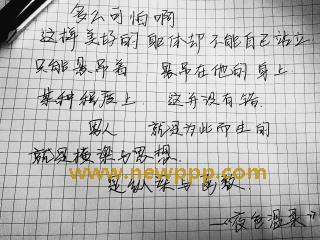 多么可怕啊
这样美好的躯体却不能自己站立
只能悬吊着 悬吊在他的身上
某种程度上 这并没有错
男人 就是为此而生的
就是横梁与思想
www.newppp.com
是纵梁与
《夜色温柔》